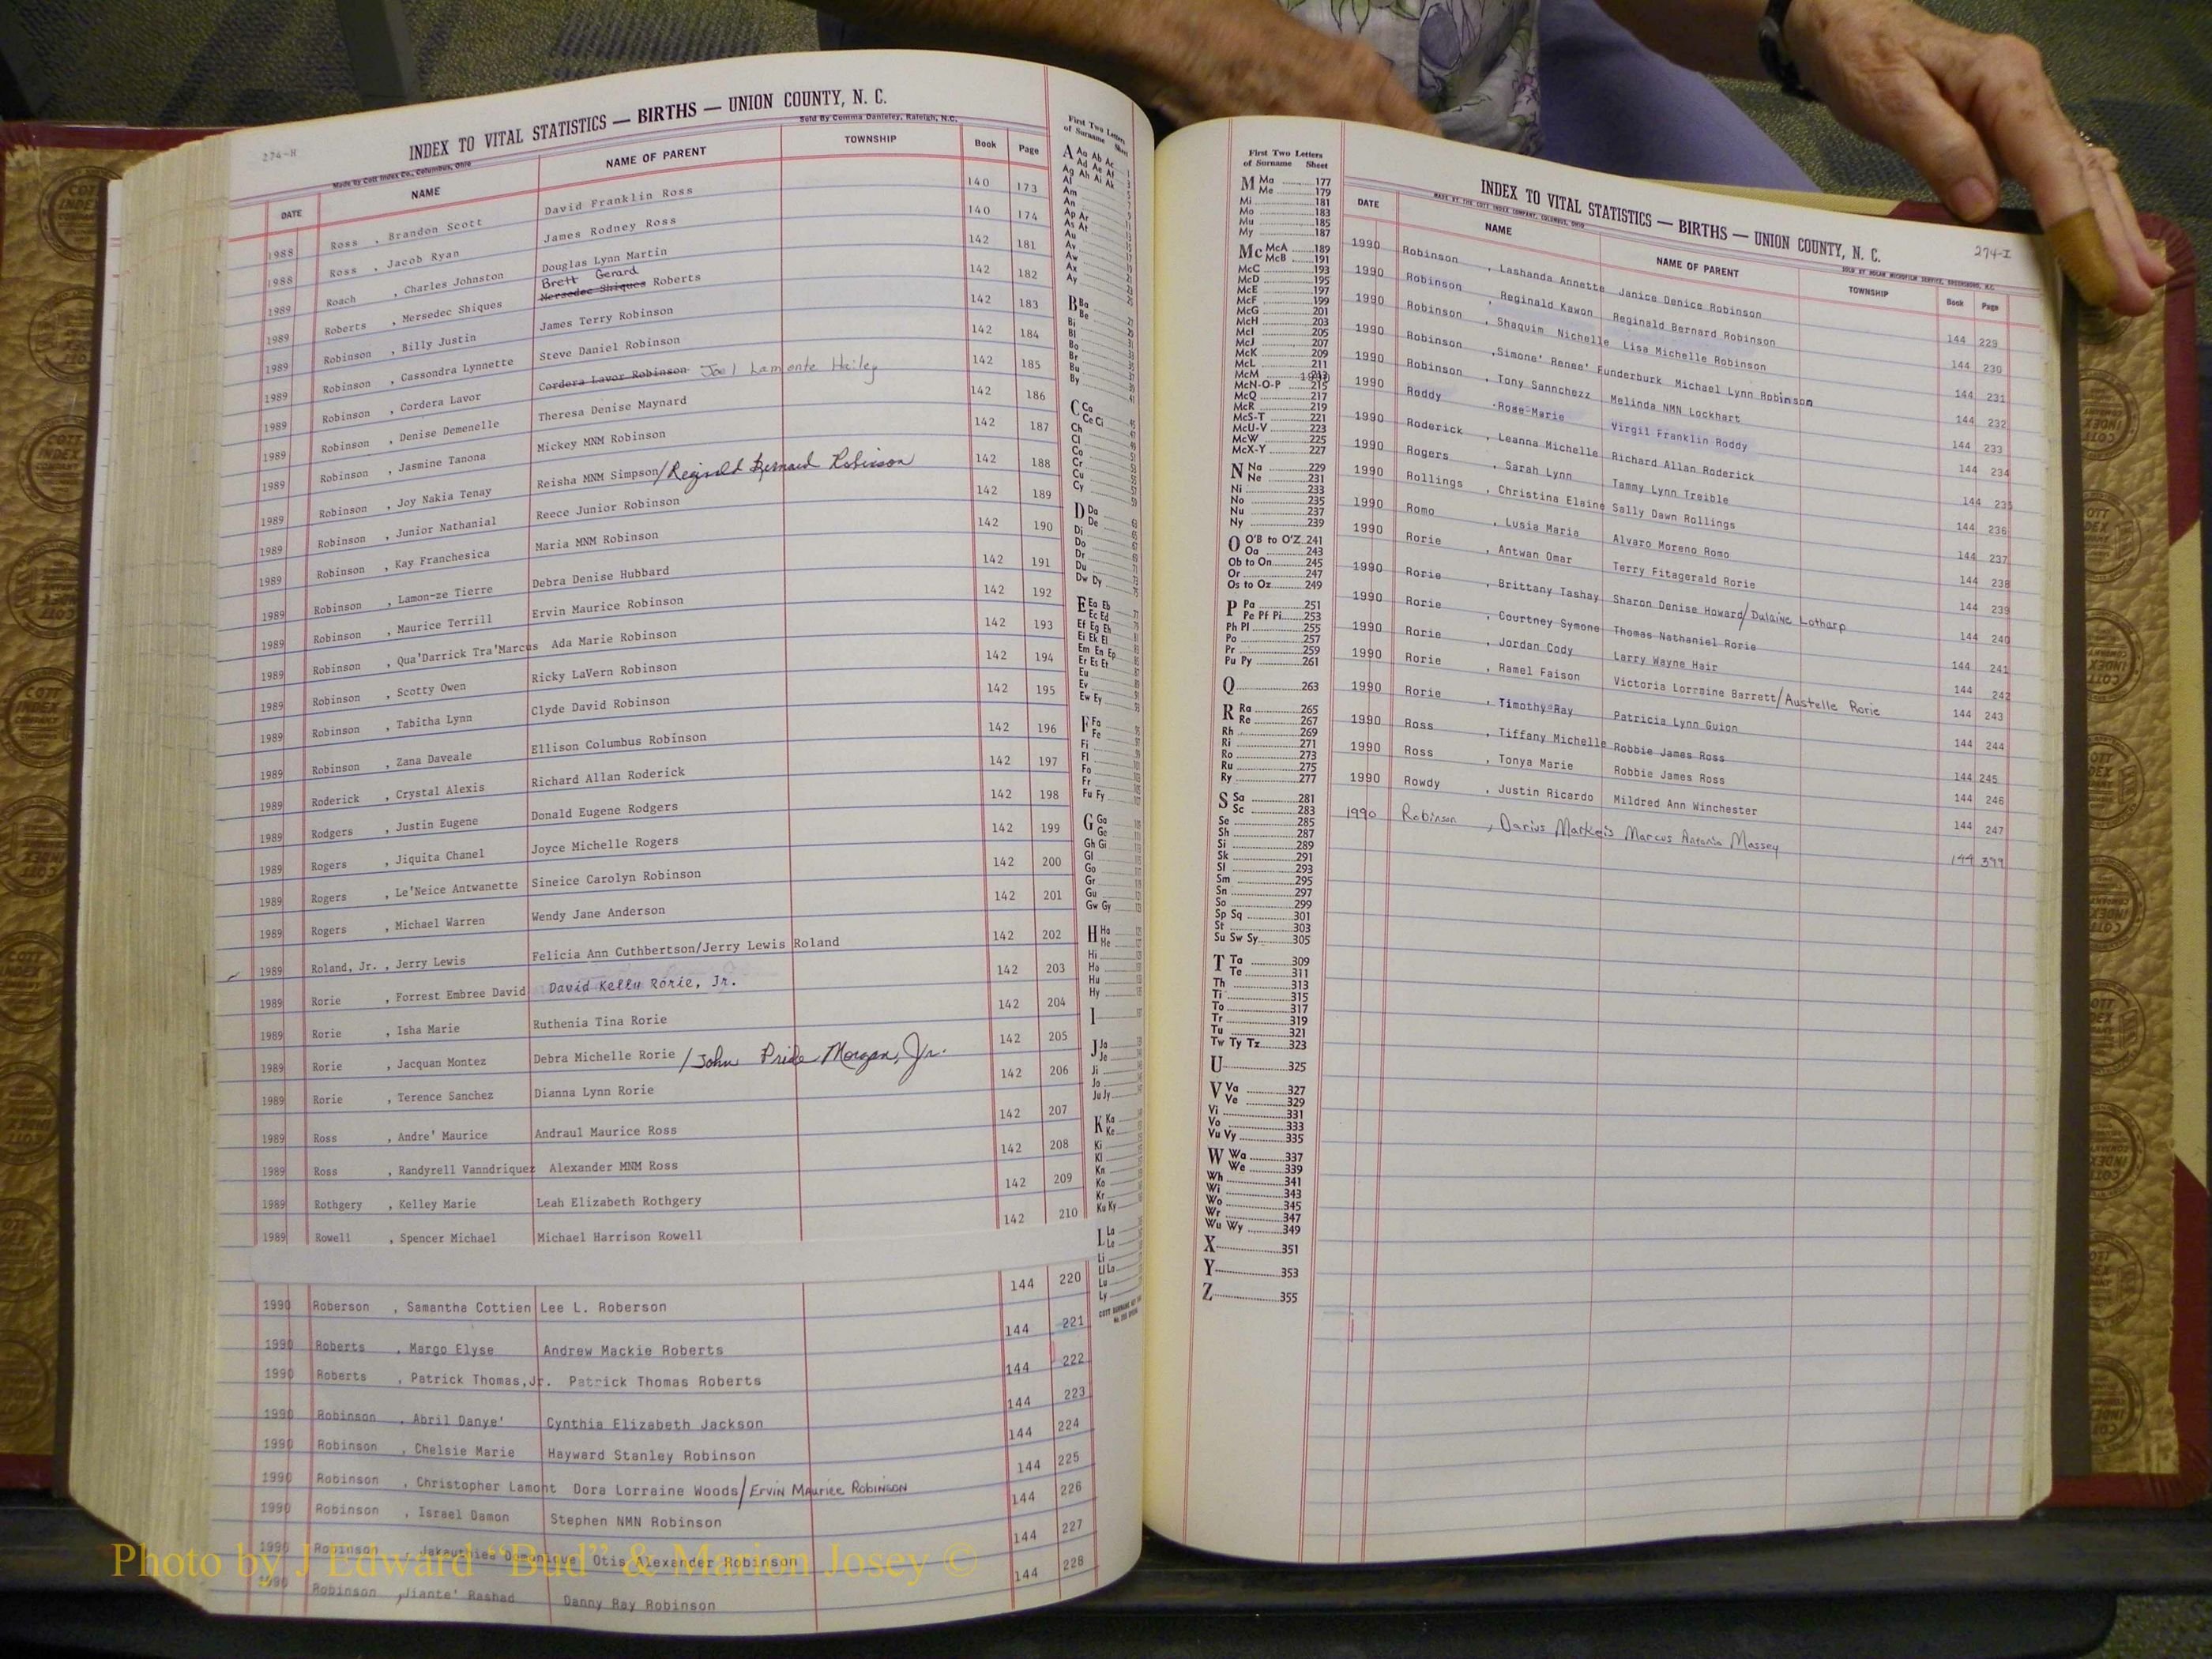 274-H
INDEX TO VITAL STATISTICS — BIRTHS — UNION COUNTY, N. C.
Made by Cott Index Co., Columbus, Ohio Sold By Comma Danieley, Raleigh, N.C.
DATE NAME NAME OF PARENT TOWNSHIP Book Page
1988 Ross , Brandon Scott David Franklin Ross 140 173
1988 Ross , Jacob Ryan James Rodney Ross 140 174
1989 Roach , Charles Johnston Douglas Lynn Martin 142 181
Brett Gerard
1989 Roberts , Mersedec Shiques Mersedec Shiques Roberts 142 182
1989 Robinson , Billy Justin James Terry Robinson 142 183
1989 Robinson , Cassondra Lynnette Steve Daniel Robinson 142 184
1989 Robinson , Cordera Lavor Cordera Lavor Robinson Joel Lamonte Hailey 142 185
1989 Robinson , Denise Demenelle Theresa Denise Maynard 142 186
1989 Robinson , Jasmine Tanona Mickey MNM Robinson 142 187
1989 Robinson , Joy Nakia Tenay Reisha MNM Simpson/Reginald Bernard Robinson 142 188
1989 Robinson , Junior Nathanial Reece Junior Robinson 142 189
1989 Robinson , Kay Franchesica Maria MNM Robinson 142 190
1989 Robinson , Lamon-ze Tierre Debra Denise Hubbard 142 191
1989 Robinson , Maurice Terrill Ervin Maurice Robinson 142 192
1989 Robinson , Qua'Darrick Tra'Marcus Ada Marie Robinson 142 193
1989 Robinson , Scotty Owen Ricky LaVern Robinson 142 194
1989 Robinson , Tabitha Lynn Clyde David Robinson 142 195
1989 Robinson , Zana Daveale Ellison Columbus Robinson 142 196
1989 Roderick , Crystal Alexis Richard Allan Roderick 142 197
1989 Rodgers , Justin Eugene Donald Eugene Rodgers 142 198
1989 Rogers , Jiquita Chanel Joyce Michelle Rogers 142 199
1989 Rogers , Le'Neice Antwanette Sineice Carolyn Robinson 142 200
1989 Rogers , Michael Warren Wendy Jane Anderson 142 201
1989 Roland, Jr. , Jerry Lewis Felicia Ann Cuthbertson/Jerry Lewis Roland 142 202
1989 Rorie , Forrest Embree David David Kelly Rorie, Jr. 142 203
1989 Rorie , Isha Marie Ruthenia Tina Rorie 142 204
1989 Rorie , Jacquan Montez Debra Michelle Rorie /John Pride Morgan, Jr. 142 205
1989 Rorie , Terence Sanchez Dianna Lynn Rorie 142 206
1989 Ross , Andre' Maurice Andraul Maurice Ross 142 207
1989 Ross , Randyrell Vanndriquez Alexander MNM Ross 142 208
1989 Rothgery , Kelley Marie Leah Elizabeth Rothgery 142 209
1989 Rowell , Spencer Michael Michael Harrison Rowell 142 210
1990 Roberson , Samantha Cottien Lee L. Roberson 144 220
1990 Roberts , Margo Elyse Andrew Mackie Roberts 144 221
1990 Roberts , Patrick Thomas,Jr. Patrick Thomas Roberts 144 222
1990 Robinson , Abril Danye' Cynthia Elizabeth Jackson 144 223
1990 Robinson , Chelsie Marie Hayward Stanley Robinson 144 224
1990 Robinson , Christopher Lamont Dora Lorraine Woods/Ervin Maurice Robinson 144 225
1990 Robinson , Israel Damon Stephen NMN Robinson 144 226
1990 Robinson , Jakeuthies Domonique Otis Alexander Robinson 144 227
1990 Robinson ,Jiante' Rashad Danny Ray Robinson 144 228
Photo by J Edward “Bud” & Marion Josey ©
First Two Letters
of Surname Sheet
A Aa Ab Ac
Ad Ae Af
Ag Ah Ai Ak
Al
Am
An
Ap Ar
As At
Au
Av
Aw
Ax
Ay
B Ba
Be
Bi
Bl
Bo
Br
Bu
By
C Ca
Ce Ci
Ch
Cl
Co
Cr
Cu
Cy
D Da
De
Di
Do
Dr
Du
Dw Dy
E Ea Eb
Ec Ed
Ef Eg Eh
Ei Ek El
Em En Ep
Er Es Et
Eu
Ev
Ew Ey
F Fa
Fe
Fi
Fl
Fo
Fr
Fu Fy
G Ga
Ge
Gh Gi
Gl
Go
Gr
Gu
Gw Gy
H Ha
He
Hi
Ho
Hu
Hy
I
J Ja
Je
Ji
Jo
Ju Jy
K Ka
Ke
Ki
Kl
Kn
Ko
Kr
Ku Ky
L La
Le
Li
Ll Lo
Lu
Ly
First Two Letters
of Surname Sheet
M Ma 177
Me 179
Mi 181
Mo 183
Mu 185
My 187
Mc McA 189
McB 191
McC 193
McD 195
McE 197
McF 199
McG 201
McH 203
McI 205
McJ 207
McK 209
McL 211
McM 213
McN-O-P 215
McQ 217
McR 219
McS-T 221
McU-V 223
McW 225
McX-Y 227
N Na 229
Ne 231
Ni 233
No 235
Nu 237
Ny 239
O O'B to O'Z 241
Oa 243
Ob to On 245
Or 247
Os to Oz 249
P Pa 251
Pe Pf Pi 253
Ph Pl 255
Po 257
Pr 259
Pu Py 261
Q 263
R Ra 265
Re 267
Rh 269
Ri 271
Ro 273
Ru 275
Ry 277
S Sa 281
Sc 283
Se 285
Sh 287
Si 289
Sk 291
Sl 293
Sm 295
Sn 297
So 299
Sp Sq 301
St 303
Su Sw Sy 305
T Ta 309
Te 311
Th 313
Ti 315
To 317
Tr 319
Tu 321
Tw Ty Tz 323
U 325
V Va 327
Ve 329
Vi 331
Vo 333
Vu Vy 335
W Wa 337
We 339
Wh 341
Wi 343
Wo 345
Wr 347
Wu Wy 349
X 351
Y 353
Z 355
INDEX TO VITAL STATISTICS — BIRTHS — UNION COUNTY, N. C. 274-I
MADE BY THE COTT INDEX COMPANY, COLUMBUS, OHIO
DATE NAME NAME OF PARENT TOWNSHIP Book Page
1990 Robinson , Lashanda Annette Janice Denice Robinson 144 229
1990 Robinson , Reginald Kawon Reginald Bernard Robinson 144 230
1990 Robinson , Shaquim Nichelle Lisa Michelle Robinson 144 231
1990 Robinson ,Simone' Renee' Funderburk Michael Lynn Robinson 144 232
1990 Robinson , Tony Sannchezz Melinda NMN Lockhart 144 233
1990 Roddy , Rose Marie Virgil Franklin Roddy 144 234
1990 Roderick , Leanna Michelle Richard Allan Roderick 144 235
1990 Rogers , Sarah Lynn Tammy Lynn Treible 144 236
1990 Rollings , Christina Elaine Sally Dawn Rollings 144 237
1990 Romo , Lusia Maria Alvaro Moreno Romo 144 238
1990 Rorie , Antwan Omar Terry Fitagerald Rorie 144 239
1990 Rorie , Brittany Tashay Sharon Denise Howard/Dulaine Lotharp 144 240
1990 Rorie , Courtney Symone Thomas Nathaniel Rorie 144 241
1990 Rorie , Jordan Cody Larry Wayne Hair 144 242
1990 Rorie , Ramel Faison Victoria Lorraine Barrett/Austelle Rorie 144 243
1990 Rorie , Timothy Ray Patricia Lynn Guion 144 244
1990 Ross , Tiffany Michelle Robbie James Ross 144 245
1990 Ross , Tonya Marie Robbie James Ross 144 246
1990 Rowdy , Justin Ricardo Mildred Ann Winchester 144 247
1990 Robinson , Darius Markeis Marcus Antonio Massey 144 399